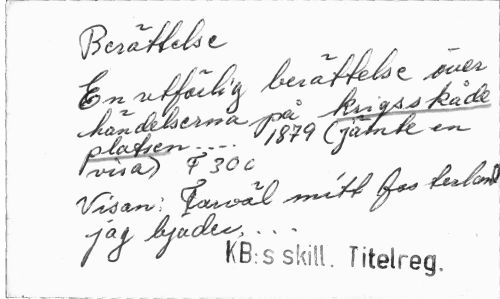 Berättelse
En utförlig berättelse över
händelserna på krigsskåde
platsen.... 1879 (jämte en
visa) F 300
Visan: Farväl mitt fosterland
jag bjuder, ...
KB:s skill. Titelreg.